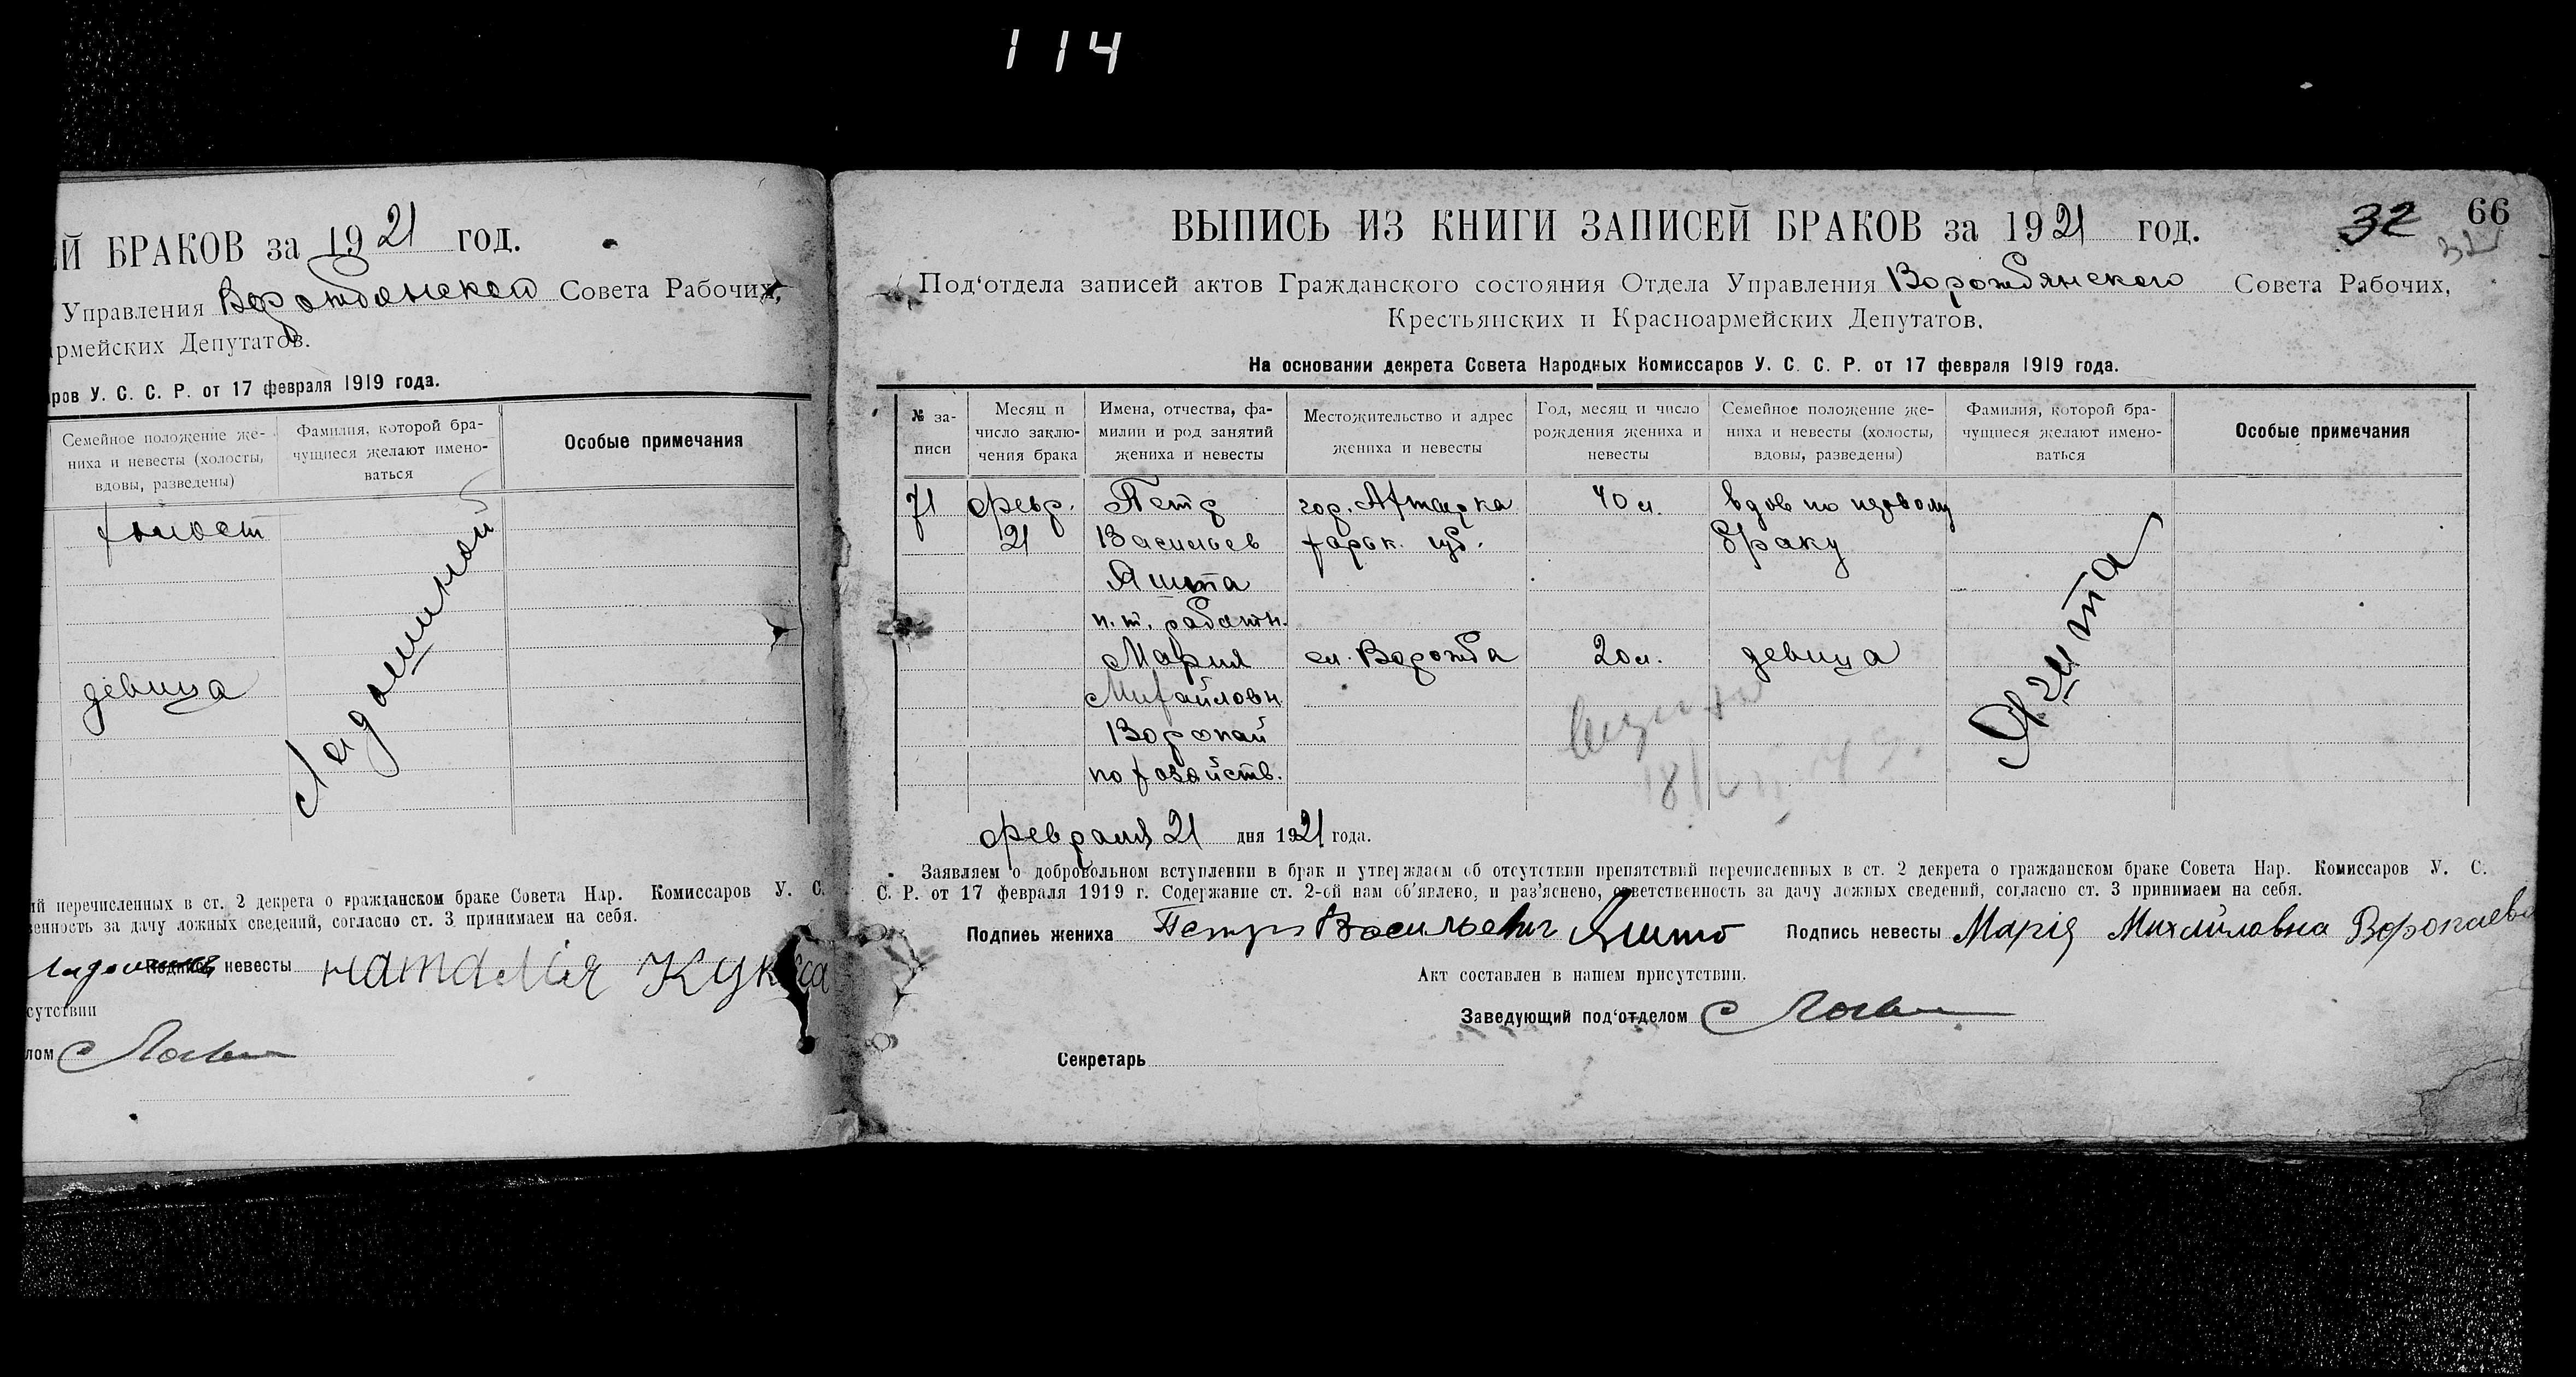 114
Й БРАКОВ за 1921 год.
Управления Ворождянского Совета Рабочих,
армейских Депутатов.
ров У. С. С. Р. от 17 февраля 1919 года.
Семейное положение же-
ниха и невесты (холосты,
вдовы, разведены)
Фамилия, которой бра-
чущиеся желают имено-
ваться
Особые примечания
холост
девица
ий перечисленных в ст. 2 декрета о гражданском браке Совета Нар. Комиссаров У. С.
венность за дачу ложных сведений, согласно ст. 3 принимаем на себя.
Подпись невесты Наталія Кукса
сутствии
лом
32 66
32
ВЫПИСЬ ИЗ КНИГИ ЗАПИСЕЙ БРАКОВ за 1921 год.
Под‘отдела записей актов Гражданского состояния Отдела Управления Ворождянского Совета Рабочих,
Крестьянских и Красноармейских Депутатов.
На основании декрета Совета Народных Комиссаров У. С. С. Р. от 17 февраля 1919 года.
№ за-
писи
Месяц и
число заклю-
чения брака
Имена, отчества, фа-
милии и род занятий
жениха и невесты
Местожительство и адрес
жениха и невесты
Год, месяц и число
рождения жениха и
невесты
Семейное положение же-
ниха и невесты (холосты,
вдовы, разведены)
Фамилия, которой бра-
чущиеся желают имено-
ваться
Особые примечания
71 Февр. Петр гор. Ахтырка 40 л. вдов по первому
21 Васильев харьк. губ. браку
Яшта
п. т. работн.
Мария сл. Ворожба 20 л. девица
Михайловн.
Воропай
по хозяйств.
Яшта
Февраля 21 дня 1921 года.
Заявляем о добровольном вступлении в брак и утверждаем об отсутствии препятствий перечисленных в ст. 2 декрета о гражданском браке Совета Нар. Комиссаров У. С.
С. Р. от 17 февраля 1919 г. Содержание ст. 2-ой нам об’явлено, и раз’яснено, ответственность за дачу ложных сведений, согласно ст. 3 принимаем на себя.
Подпись жениха Петр Васильевич Яшта Подпись невесты Марія Михайловна Воропаева
Акт составлен в нашем присутствии.
Заведующий под‘отделом
Секретарь